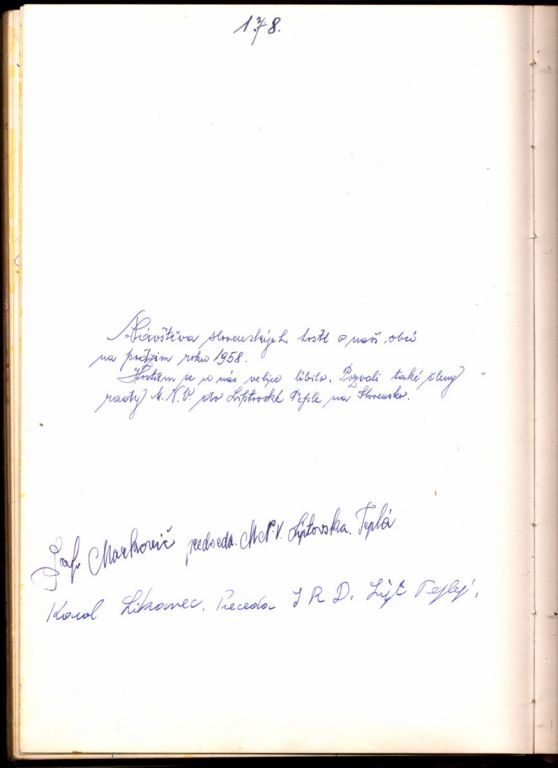 178.
Návštěva slovenských hostí v naší obci
na podzim roku 1958.
Hostům se u nás velice líbilo. Pozvali také členy
rady M.N.V. do Liptovské Teplé na Slovensko.
Markovič predseda. M.N.V. Liptovska. Teplá
Karol. D. Lipt Teplej.